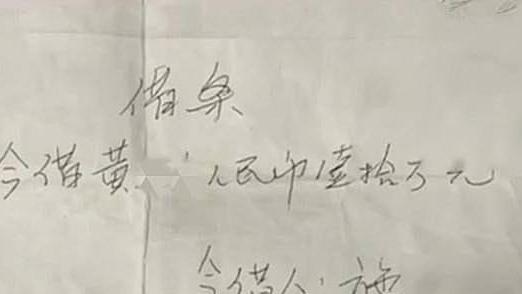 借条
今借黄 人民币壹拾万元
今借人:施